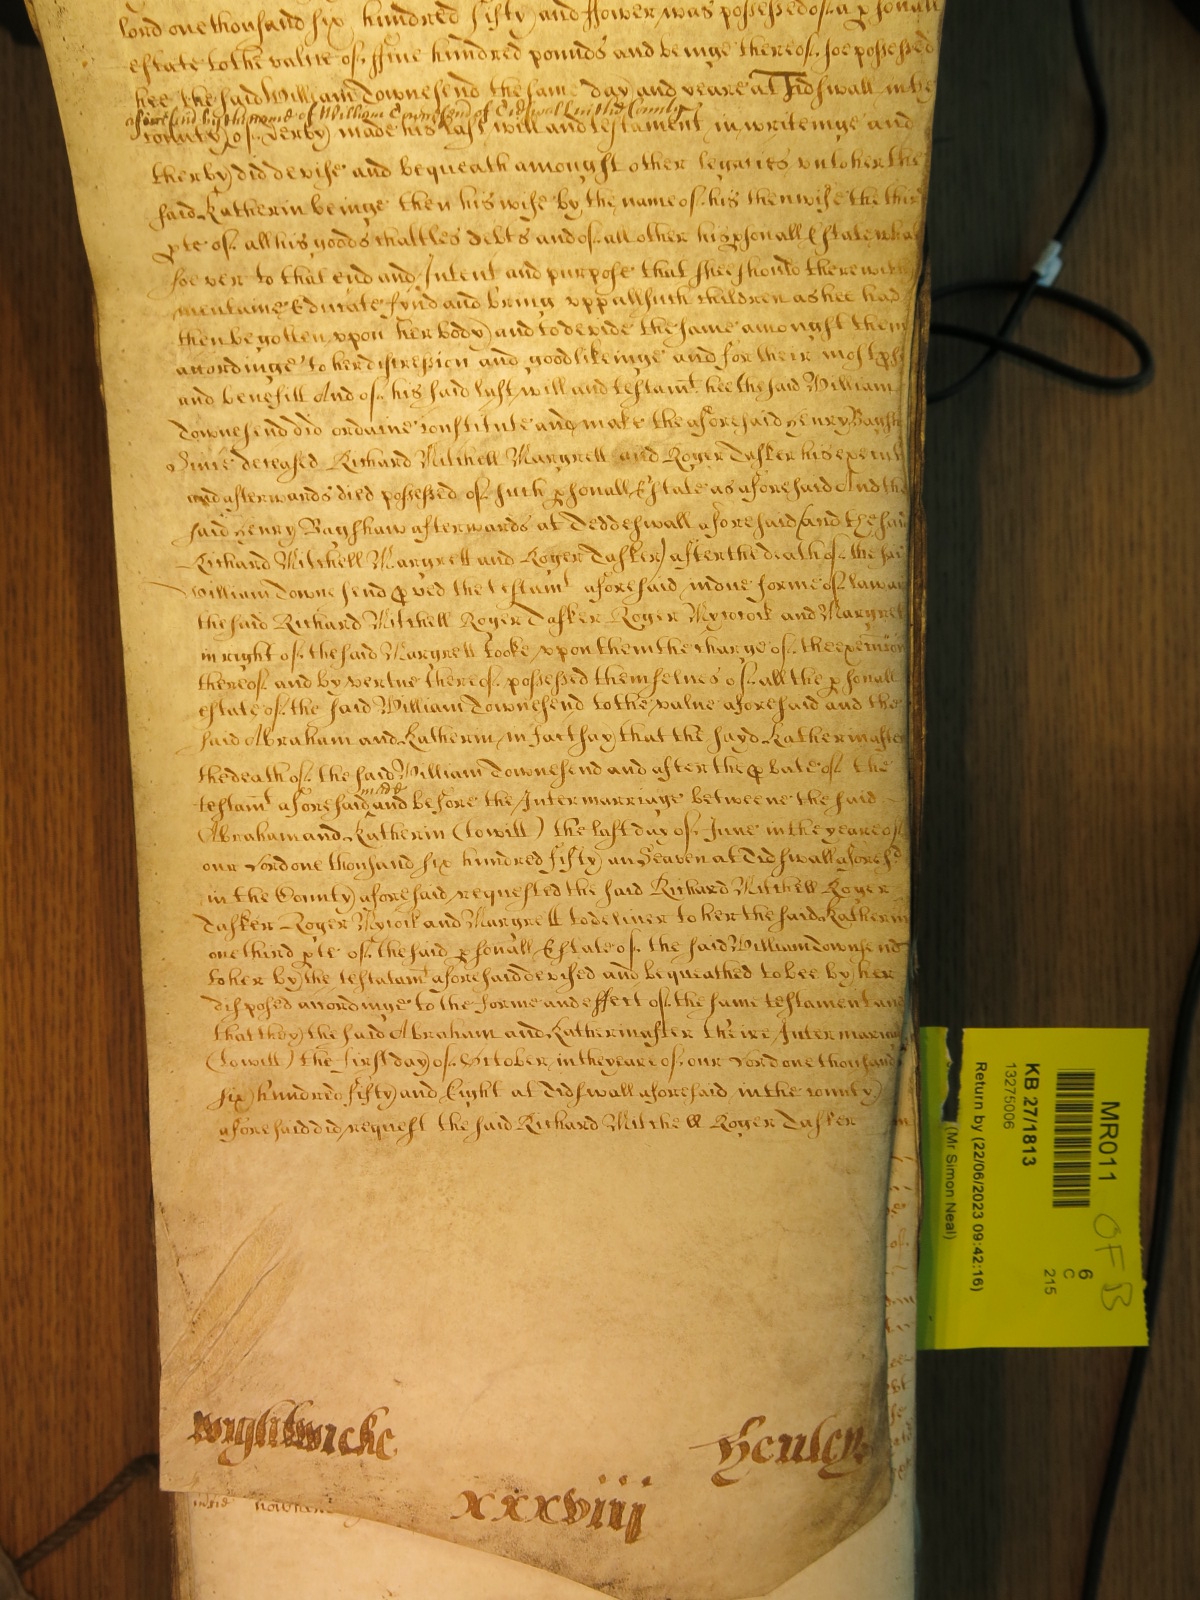 lord one thousand six hundred fifty and ffower was possessed of a psonall
estate to the value of ffive hundred pounds and beinge thereof soe possessed
hee the said William Townesend the same day and yeare at Tidswall in the
aforesaid by the name of William Townesend of Tidswall in the County
County of Derby made his last will and testament in writeinge and
therby did devise and bequeath amongst other legacies unto her the
said Katherin beinge then his wife by the name of his then wife the third
pte of all his goods chattles debts and of all other his psonall Estate what
soever to that end and Intent and purpose that shee should therewith
mentaine Educate fynd and bring vpp all such children as hee had
then begotten vpon her body and to devide the same amongst them
accordinge to her discression and good likeinge and for their most
and benefitt And of his said last will and testamt. hee the said William
Townesend did ordaine constitute and make the aforesaid Henry Bagsh
deceased Richard Mitchell Margrett and Roger Tasker his
and afterwards died possessed of such psonall Estate as aforesaid And the
said Henry Bagshaw afterwards at Teddeswall aforesaid (and the said
Richard Mitchell Margrett and Roger Tasker) after the death of the said
William Townesend pved the testamt aforesaid in due forme of law and
the said Richard Mitchell Roger Tasker Roger Mycock and Margrett
in right of the said Margrett tooke vpon them the charge of the
thereof and by vertue thereof possessed themselves of all the psonall
estate of the said William Townesend to the value aforesaid and the
said Abraham and Katherin in fact say that the sayd Katherin after
the death of the said William Townesend and after the pbate of the
testamt aforesaid made and before the Intermarriage betweene the said
Abraham and Katherin (to witt) the last day of June in the yeare of
our Lord one thousand six hundred fifty an Seaven at Tidswall aforesd
in the County aforesaid requested the said Richard Mitchell Roger
Tasker Roger Mycock and Margrett to deliver to her the said Katherin
one third pte of the said psonall Estate of the said William Townsend
to her by the testatamt aforesaid devised and bequeathed to bee by her
disposed accordinge to the forme and effect of the same testament and
that they the said Abraham and Katherin after theire Intermarria
(to witt) the first day of October in the yeare of our Lord one thousand
six hundred fifty and Eight at Tidswall aforesaid in the county
aforesaid did request the said Richard Mitchell Roger Tasker
Wightwicke
Henley
xxxviij
MR011
OFB
6
C
215
KB 27/1813
13275006
Return by (22/06/2023 09:42:16)
(Mr Simon Neal)